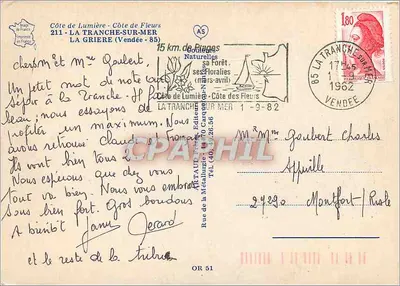 Côte de Lumière - Côte de Fleurs
211 - LA TRANCHE-SUR-MER
LA GRIERE (Vendée - 85)
AS
15 km. de Plages
Naturelles
sa Forêt
ses Floralies
(mars-avril)
Côte de Lumière - Côte des Fleurs
LA TRANCHE SUR MER 1-9-82
85 LA TRANCHE-SUR-MER
1982
VENDEE
1,80
Cher M et Mme Goubert.
Un petit mot de notre
séjour à la Tranche. Il fait
beau; nous essayons de
profiter un maximum. Nous
avons retrouvé Claude et
Ils vont bien tous
Nous espérons que chez vous
tout va bien. Nous vous embrassons
tous bien fort. Gros boudous
A bientôt
Gerard
et le reste de la tribu
M et Mme Goubert Charles
Appeville
27290 Montfort/Risle
Rue de la Métallurgie
OR 51
CPHTIL